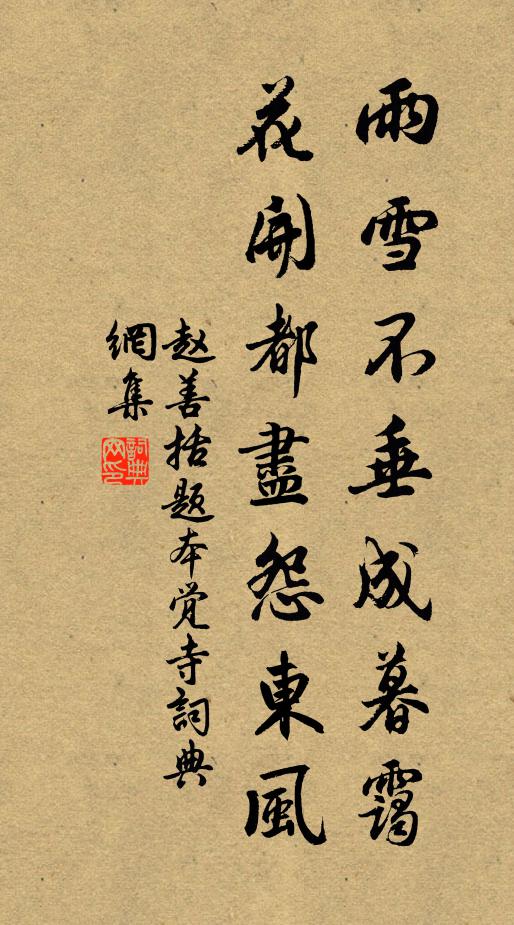 雨雪不垂成暮靄
花開都盡怨東風
赵善括题本觉寺詞典
網集
詞典网印